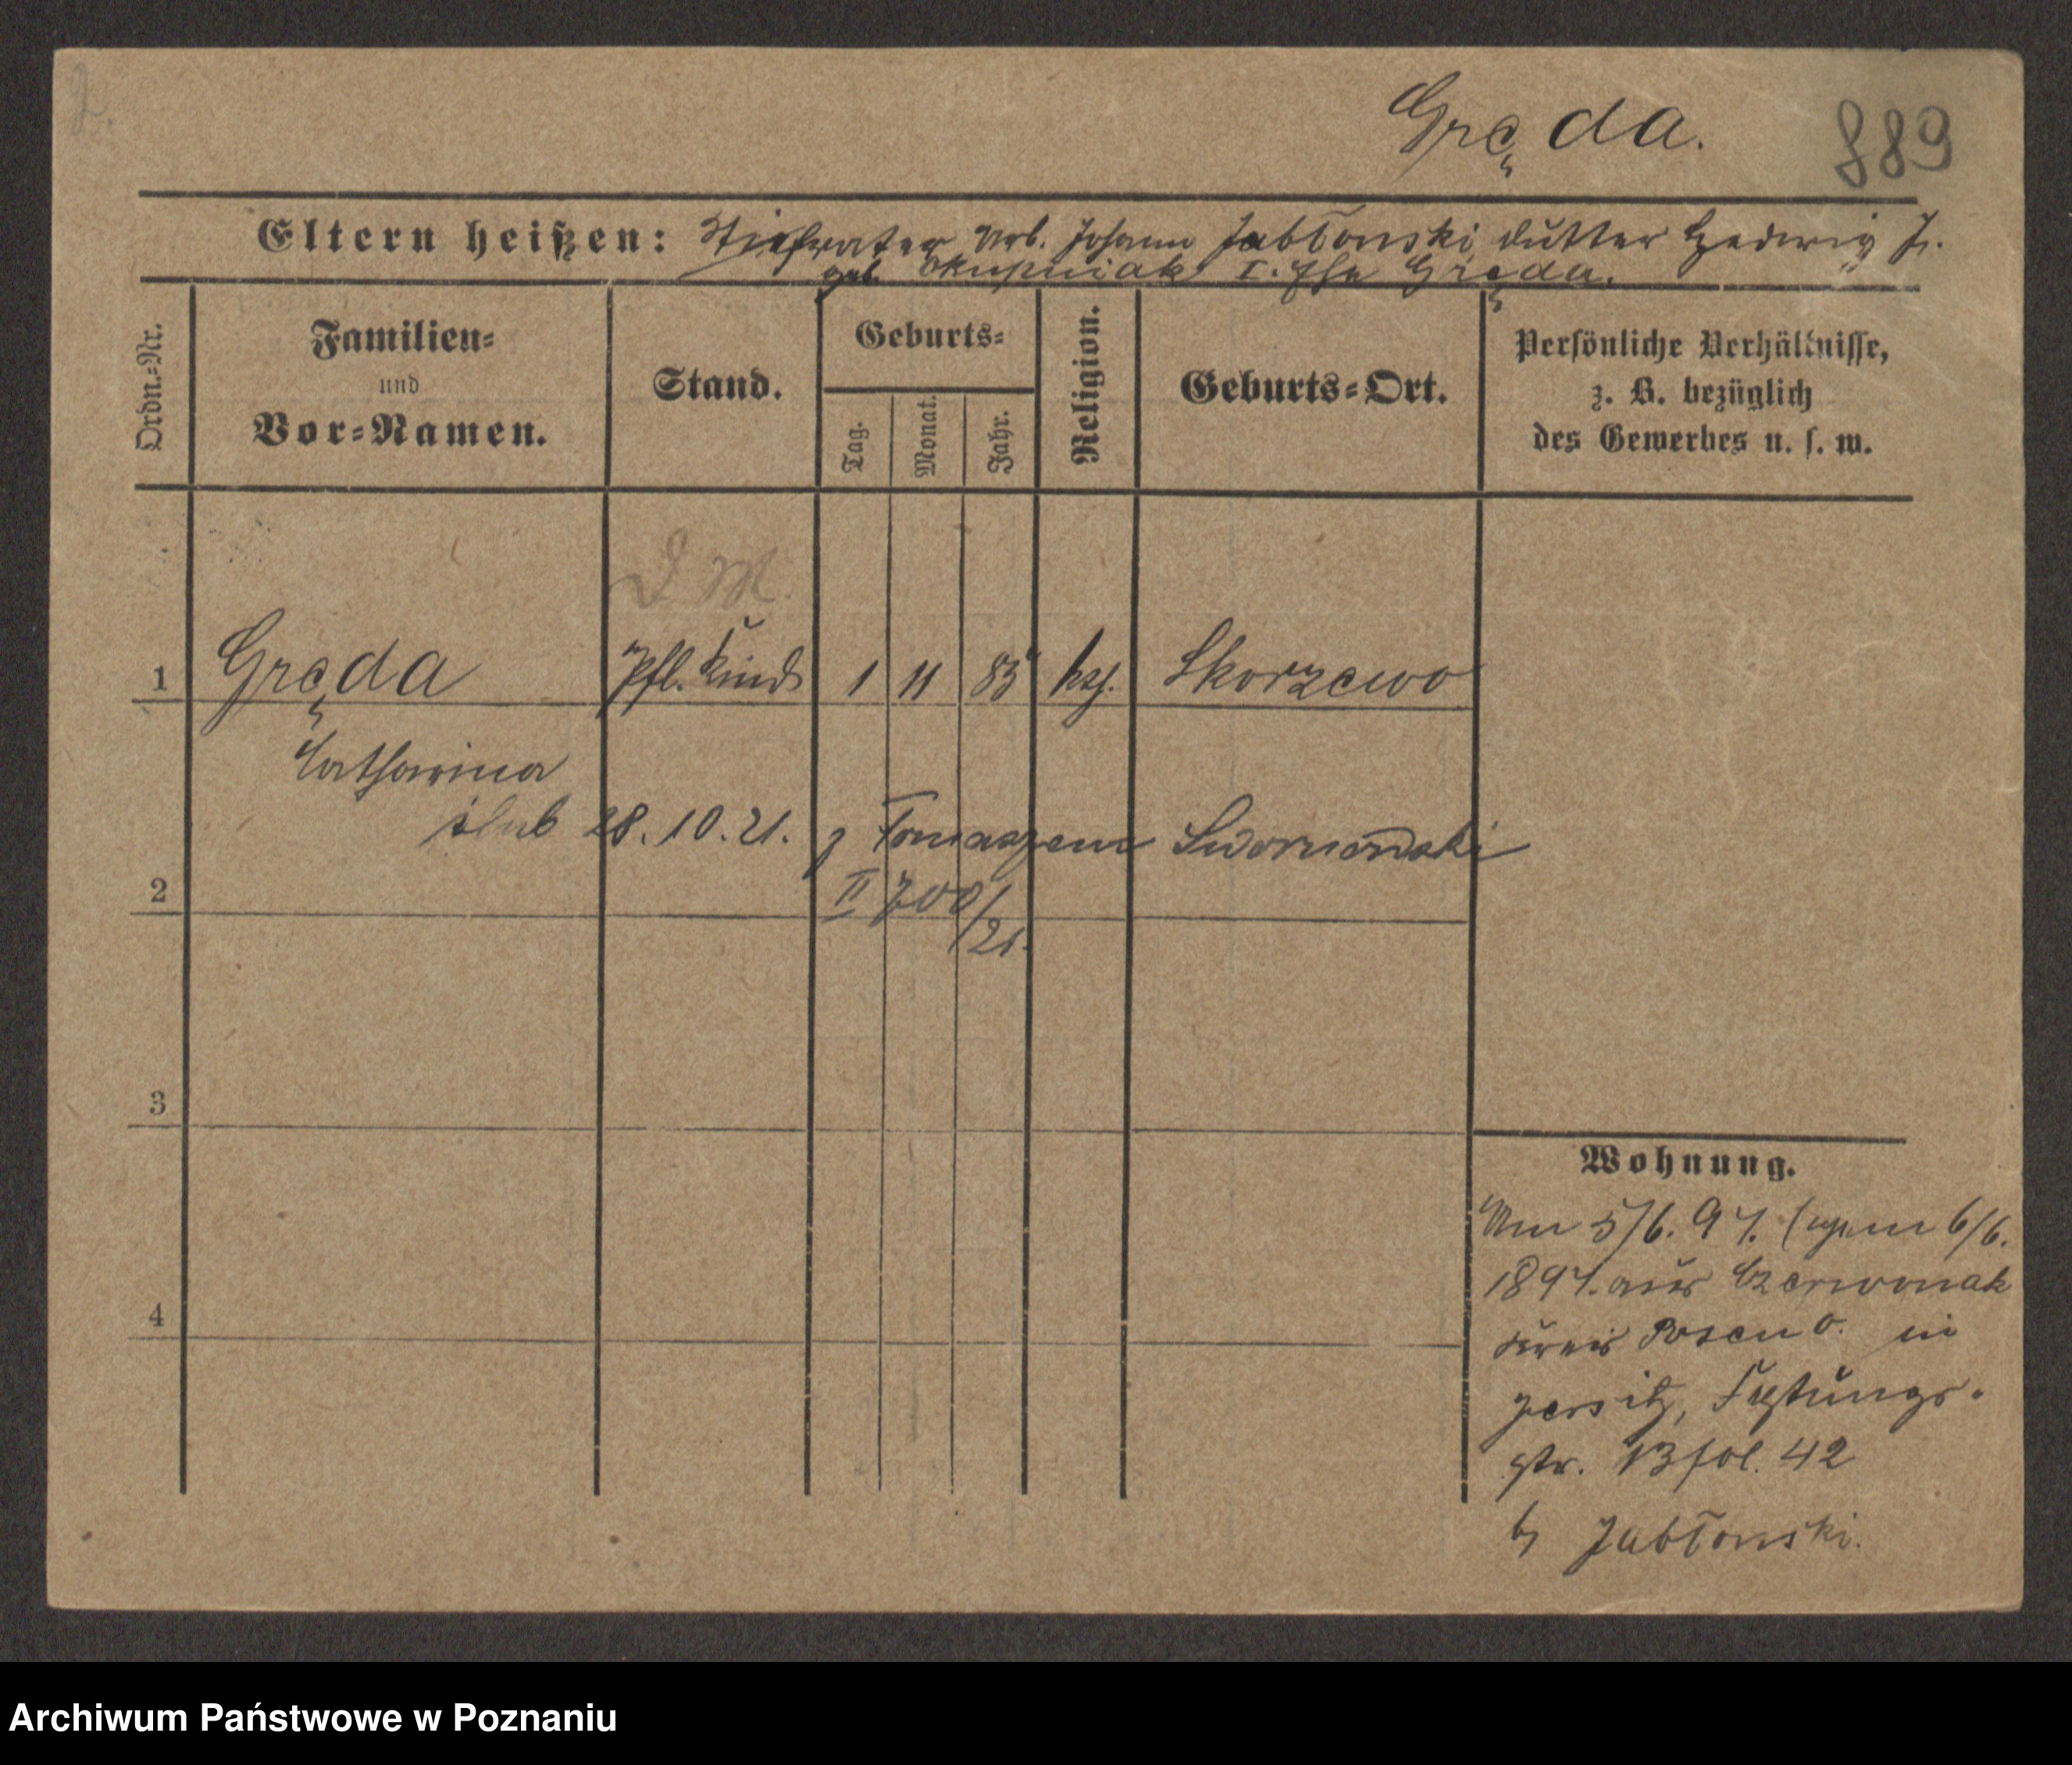 2.
Gręda.
889
Eltern heißen: Stiefvater Arb. Johann Jabłonski, Mutter Hedwig J.
geb. Skupniak I. Ehe Gręda.
Ordn.-Nr.
Familien-
und
Vor-Namen.
Stand.
Geburts-
Tag.
Monat.
Jahr.
Religion.
Geburts-Ort.
Persönliche Verhältnisse,
z. B. bezüglich
des Gewerbes u. s. w.
D M.
1 Gręda Pfl. Kind 1 11 85 kth. Skorzewo
Catharina
ślub 28. 10. 21. z Tomaszem
2 II 700/21.
3
4
Wohnung.
Am 5/6. 97. (gem 6/6.
1897. aus Czerwonak
Kreis Posen O. in
Jersitz, Festungs-
str. 13 fol. 42
b/ Jabłonski.
Archiwum Państwowe w Poznaniu